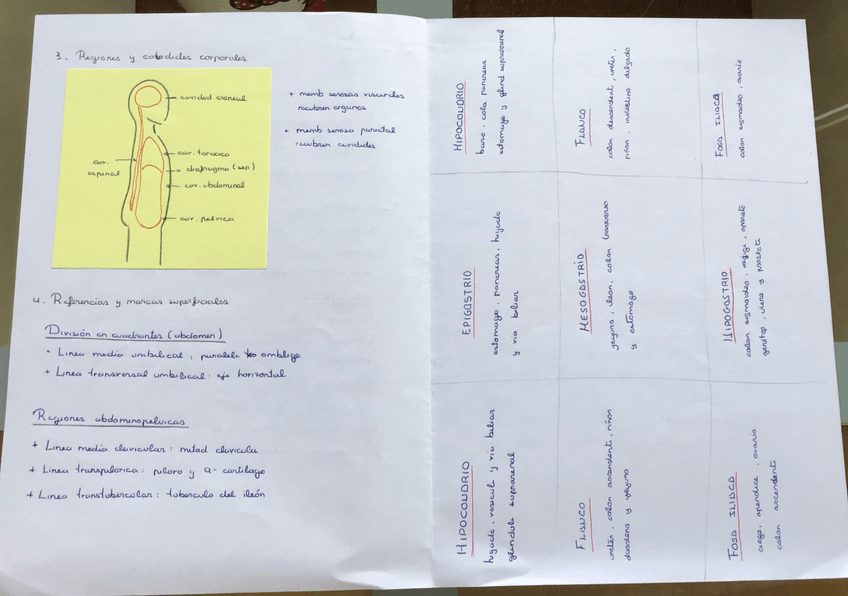 3. Regiones y cavidades corporales
cavidad craneal
cav. torácica
diafragma (sep)
cav. abdominal
cav. pelvica
cav. espinal
+ memb serosas viscerales
recubren organos
+ memb serosa parietal
recubren cavidades
4. Referencias y marcas superficiales
División en cuadrantes (abdomen)
+ Linea media umbilical; paralela ombligo
+ Linea transversal umbilical: eje horizontal
Regiones abdominopelvicas
+ Linea media clavicular: mitad clavicula
+ Linea transpilorica: piloro y 9º cartilago
+ Linea transtubercular: tuberculo del ileón
HIPOCONDRIO
higado, vesicula y via biliar
glandula suprarrenal
EPIGASTRIO
estomago, pancreas, higado
y via biliar
HIPOCONDRIO
bazo, cola pancreas
estomago y gland suprarrenal
FLANCO
uretér, colon ascendent, riñon
duodeno y yeyuno
MESOGASTRIO
yeyuno, ileon, colon transverso
y estomago
FLANCO
colon descendent, uretér,
riñon, intestino delgado
FOSA ILIACA
ciego, apendice, ovario
colon ascendent
HIPOGASTRIO
colon sigmoideo, vejiga, aparato
genital, utero y prostata
FOSA ILIACA
colon sigmoideo, ovario